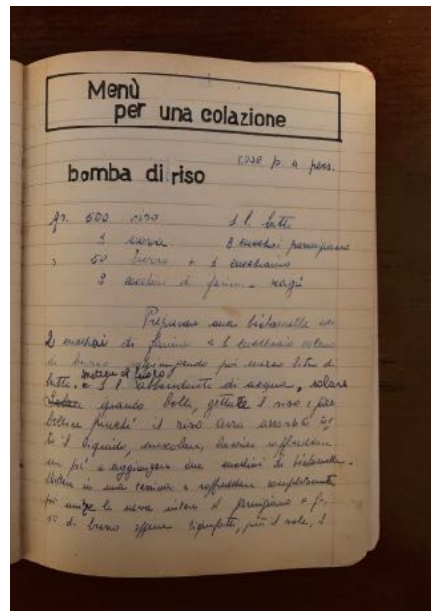 Menù
per una colazione
bomba di riso
gr. 500 riso 1 l. latte
3 uova 3 cucchai parmigiano
50 burro + 1 cucchiaino
2 di farina - ragù
Preparare una bisciamella con
2 cucchai di farina e 1 cucchiaio colmo
di burro aggiungendo poi mezzo litro di
latte. mettere al fuoco 1 l. abbondante di acqua, salare
quando bolle, gettate il riso e far
bollire finché il riso avrà assorbito
to il liquido, mescolare, lasciar raffreddare
un pò e aggiungere due di bisciamella.
Mettere in una terrina e raffreddare completamente
poi unire le uova intere il parmigiano e gr.
50 di burro appena liquefatti, più il sale, 1